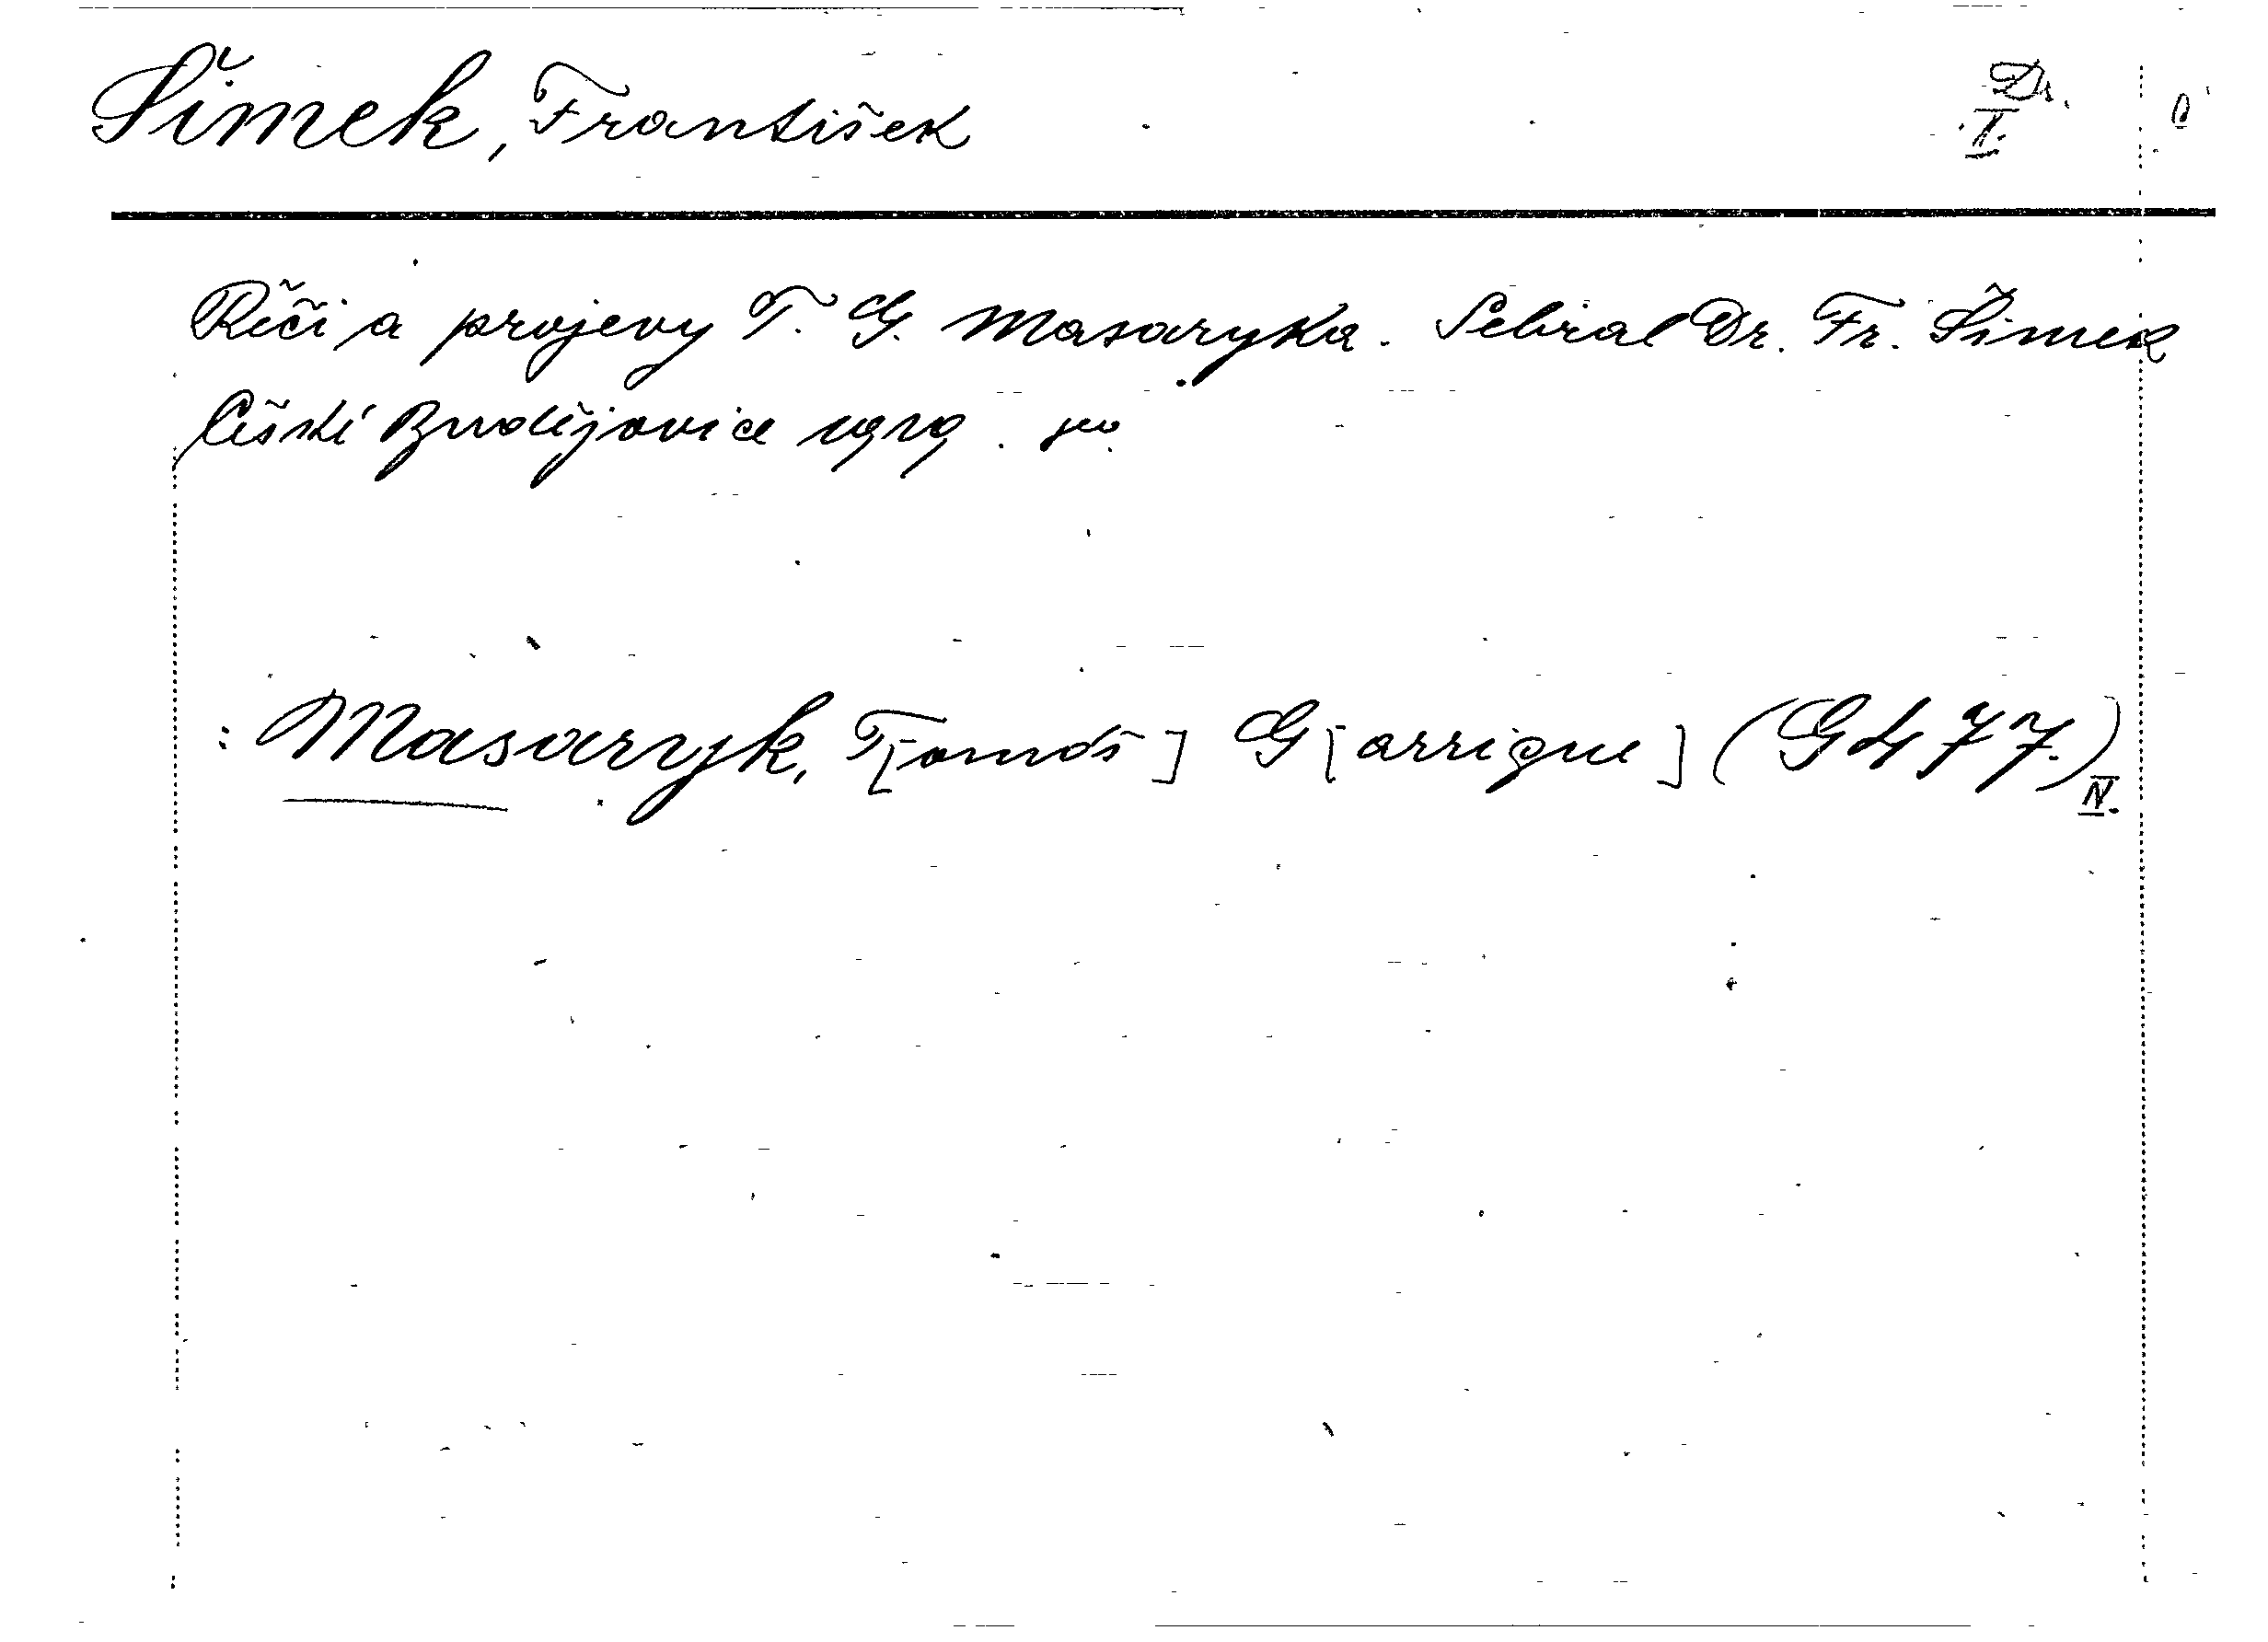 Šimek, František Dr.
I.
Řeči a projevy T. G. Masaryka. Sebral Dr. Fr. Šimek
České Budějovice 1919. 8º.
: Masaryk, T[omáš] G[arrigue] (G 477.)
IV.